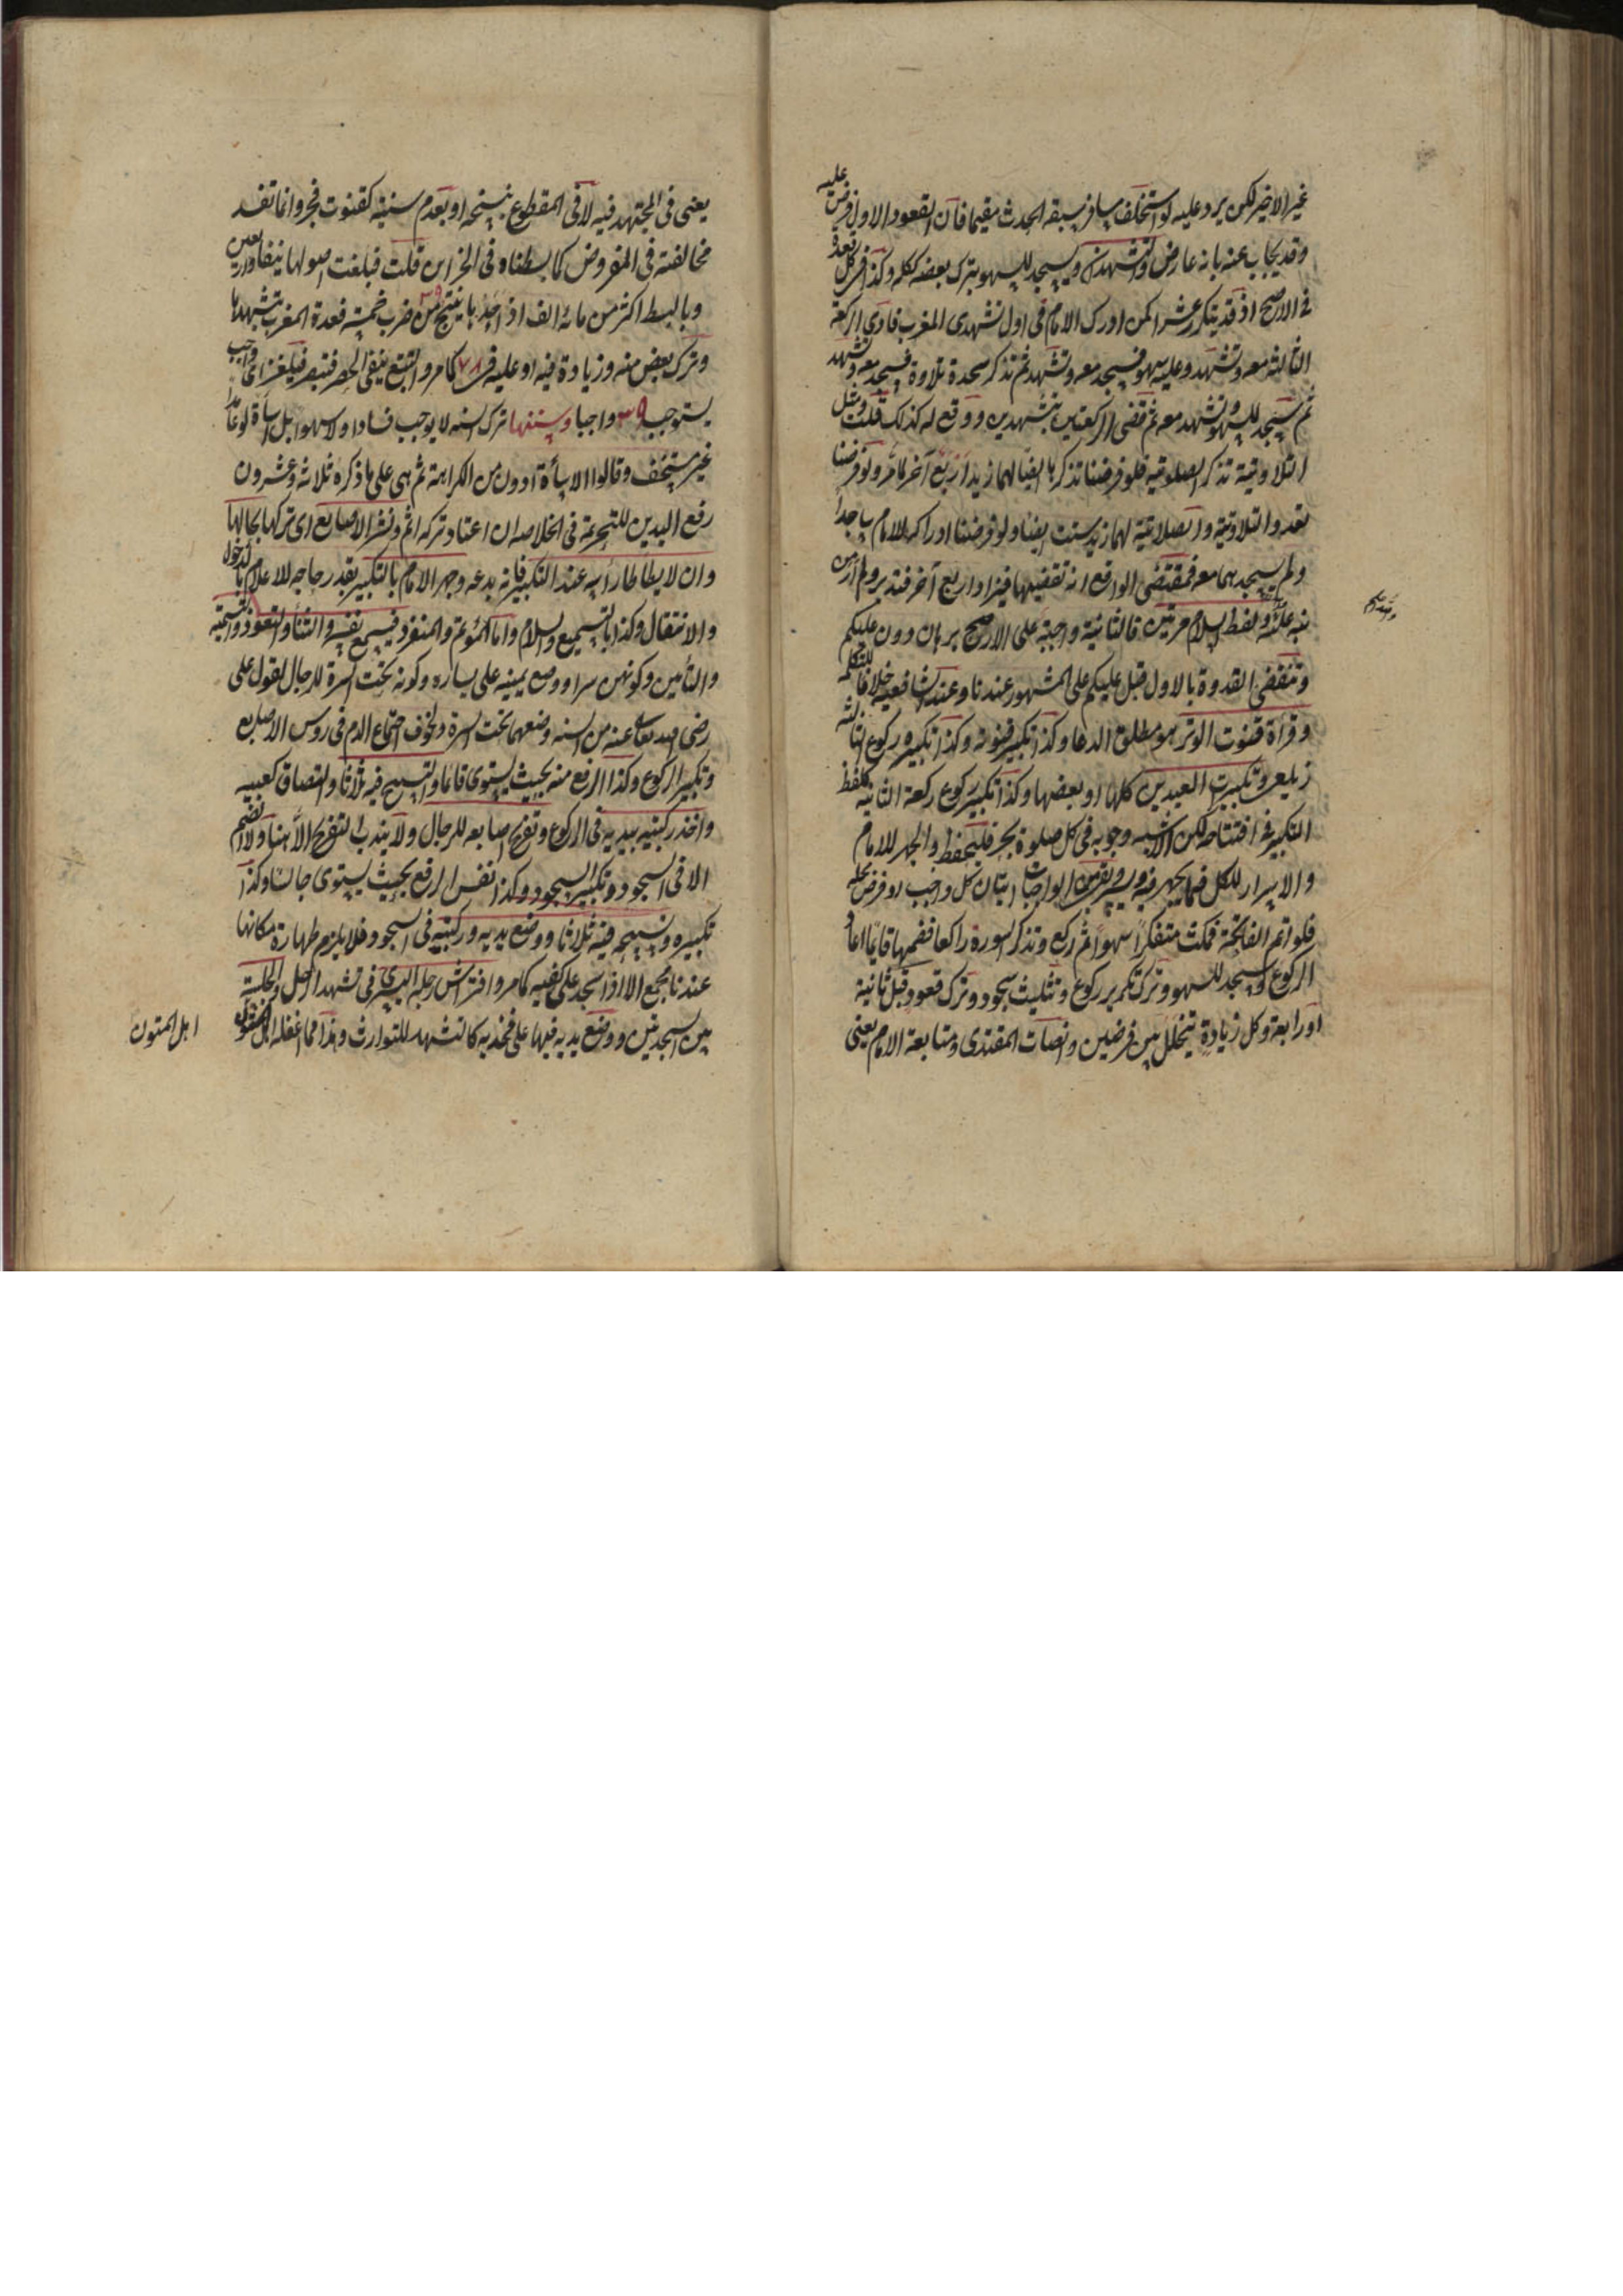 غير الاخير لكن يرد عليه لو استخلف مسافر سبقه الحدث مقيما فان القعود الاول فرض عليه
وقد يجاب عنه بانه عارض والتشهدان ويسجد للسهو بترك بعضه ككله وكذا في كل قعدة
في الاصح اذ قد يتكرر عشرا كمن ادرك الامام في اول تشهدى المغرب فادى الركعة
الثالثة معه وتشهد وعليه سهو فسجد معه وتشهد ثم تذكر سجدة تلاوة فسجد معه وتشهد
ثم سجد للسهو وتشهد معه ثم قضى الركعتين بتشهدين ووقع له كذلك قلت ومثل
التلاوتية تذكر الصلوتية فلو فرضنا تذكرها ايضا لهما زيد اربع آخر لما مر ولو فرضنا
تعدد التلاوتية والصلاتية لهما زيد ست ايضا ولو فرضنا ادراكه للامام ساجدا
ولم يسجدهما معه فمقتضى الواقع انه يقضيهما فيزاد اربع آخر فتدبر ولم ار من
نبه عليه ولفظ السلام مرتين فالثانية واجبة على الاصح برهان دون عليكم
وتنقضى القدوة بالاول قبل عليكم على المشهور عندنا وعند الشافعية خلافا للتكملة
وقرأة قنوت الوتر هو مطلق الدعا وكذا تكبير قنوته وكذا تكبيره ركوع الثالثة
زيلعى وتكبيرت العيدين كلها او بعضها وكذا تكبير ركوع ركعة الثانية كلفظ
التكبير في افتتاحه لكن الاشبه وجوبه في كل صلوة بحر فليحفظ والجهر للامام
والاسرار للكل فيما يجهر فيه ويسر وبقى من الواجبات اتيان كل واجب او فرض محله
فلو اتم الفاتحة فمكث متفكرا سهوا ثم ركع وتذكر السورة راكعا فضمها قايما اعاد
الركوع وسجد للسهو وترك تكرير ركوع وتثليث سجود وترك قعود قبل ثانية
او رابعة وكل زيادة يتخلل بين فرضين وانصات المقتدى ومتابعة الامام يعنى
يعنى في المجتهد فيه لا في المقطوع بنسخه او بعدم سنيته كقنوت فجر وانما تفسد
مخالفته في المفروض كما بسطناه في الخزاين قلت فبلغت اصولها نيفا واربعين
وبالبسط اكثر من مائة الف اذ احدها ينتج ٣٩٠ من ضرب خمسة قعدة المغرب بتشهدها
وترك بعض منه وزيادة فيه او عليه في ٧٨ كما مر والتتبع ينفى الحصر فتبصر فيلغز اى واجب
يستوجب ٣٩٠ واجبا وسننها ترك السنه لا يوجب فسادا ولا سهوا بل اساءة لو عامدا
غير مستخف وقالوا الاساءة ادون من الكراهة ثم هى على ما ذكره ثلاثة وعشرون
رفع اليدين للتحريمة في الخلاصه ان اعتاد تركه اثم ونشر الاصابع اى تركها بحالها
وان لا يطاطا راسه عند التكبير فانه بدعه وجهر الامام بالتكبير بقدر حاجه للاعلام بالدخول
والانتقال وكذا بالتسميع والسلام واما المؤتم والمنفرد فيسمع نفسه والثنا والتعوذ والتسمية
والتأمين وكونهن سرا ووضع يمينه على يساره وكونه تحت السرة للرجال لقول على
رضى الله تعالى عنه من السنه وضعهما تحت السرة ولخوف اجتماع الدم في روس الاصابع
وتكبير الركوع وكذا الرفع منه بحيث يستوى قائما والتسبيح فيه ثلاثا والتصاق كعبيه
واخذ ركبتيه بيديه في الركوع وتفريج اصابعه للرجال ولا يندب التفريج الا هنا ولا الضم
الا في السجود وتكبير السجود وكذا نفس الرفع بحيث يستوى جالسا وكذا
تكبيره وتسبيحه فيه ثلاثا ووضع يديه وركبتيه في السجود فلا يلزم طهارة مكانها
عندنا مجمع الا اذا سجد على كفيه كما مر وافتراش رجله اليسرى في تشهد الرجل والجلسة
بين السجدتين ووضع يديه فيها على فخذيه كالتشهد للتوارث وهذا مما اغفله
اهل المتون